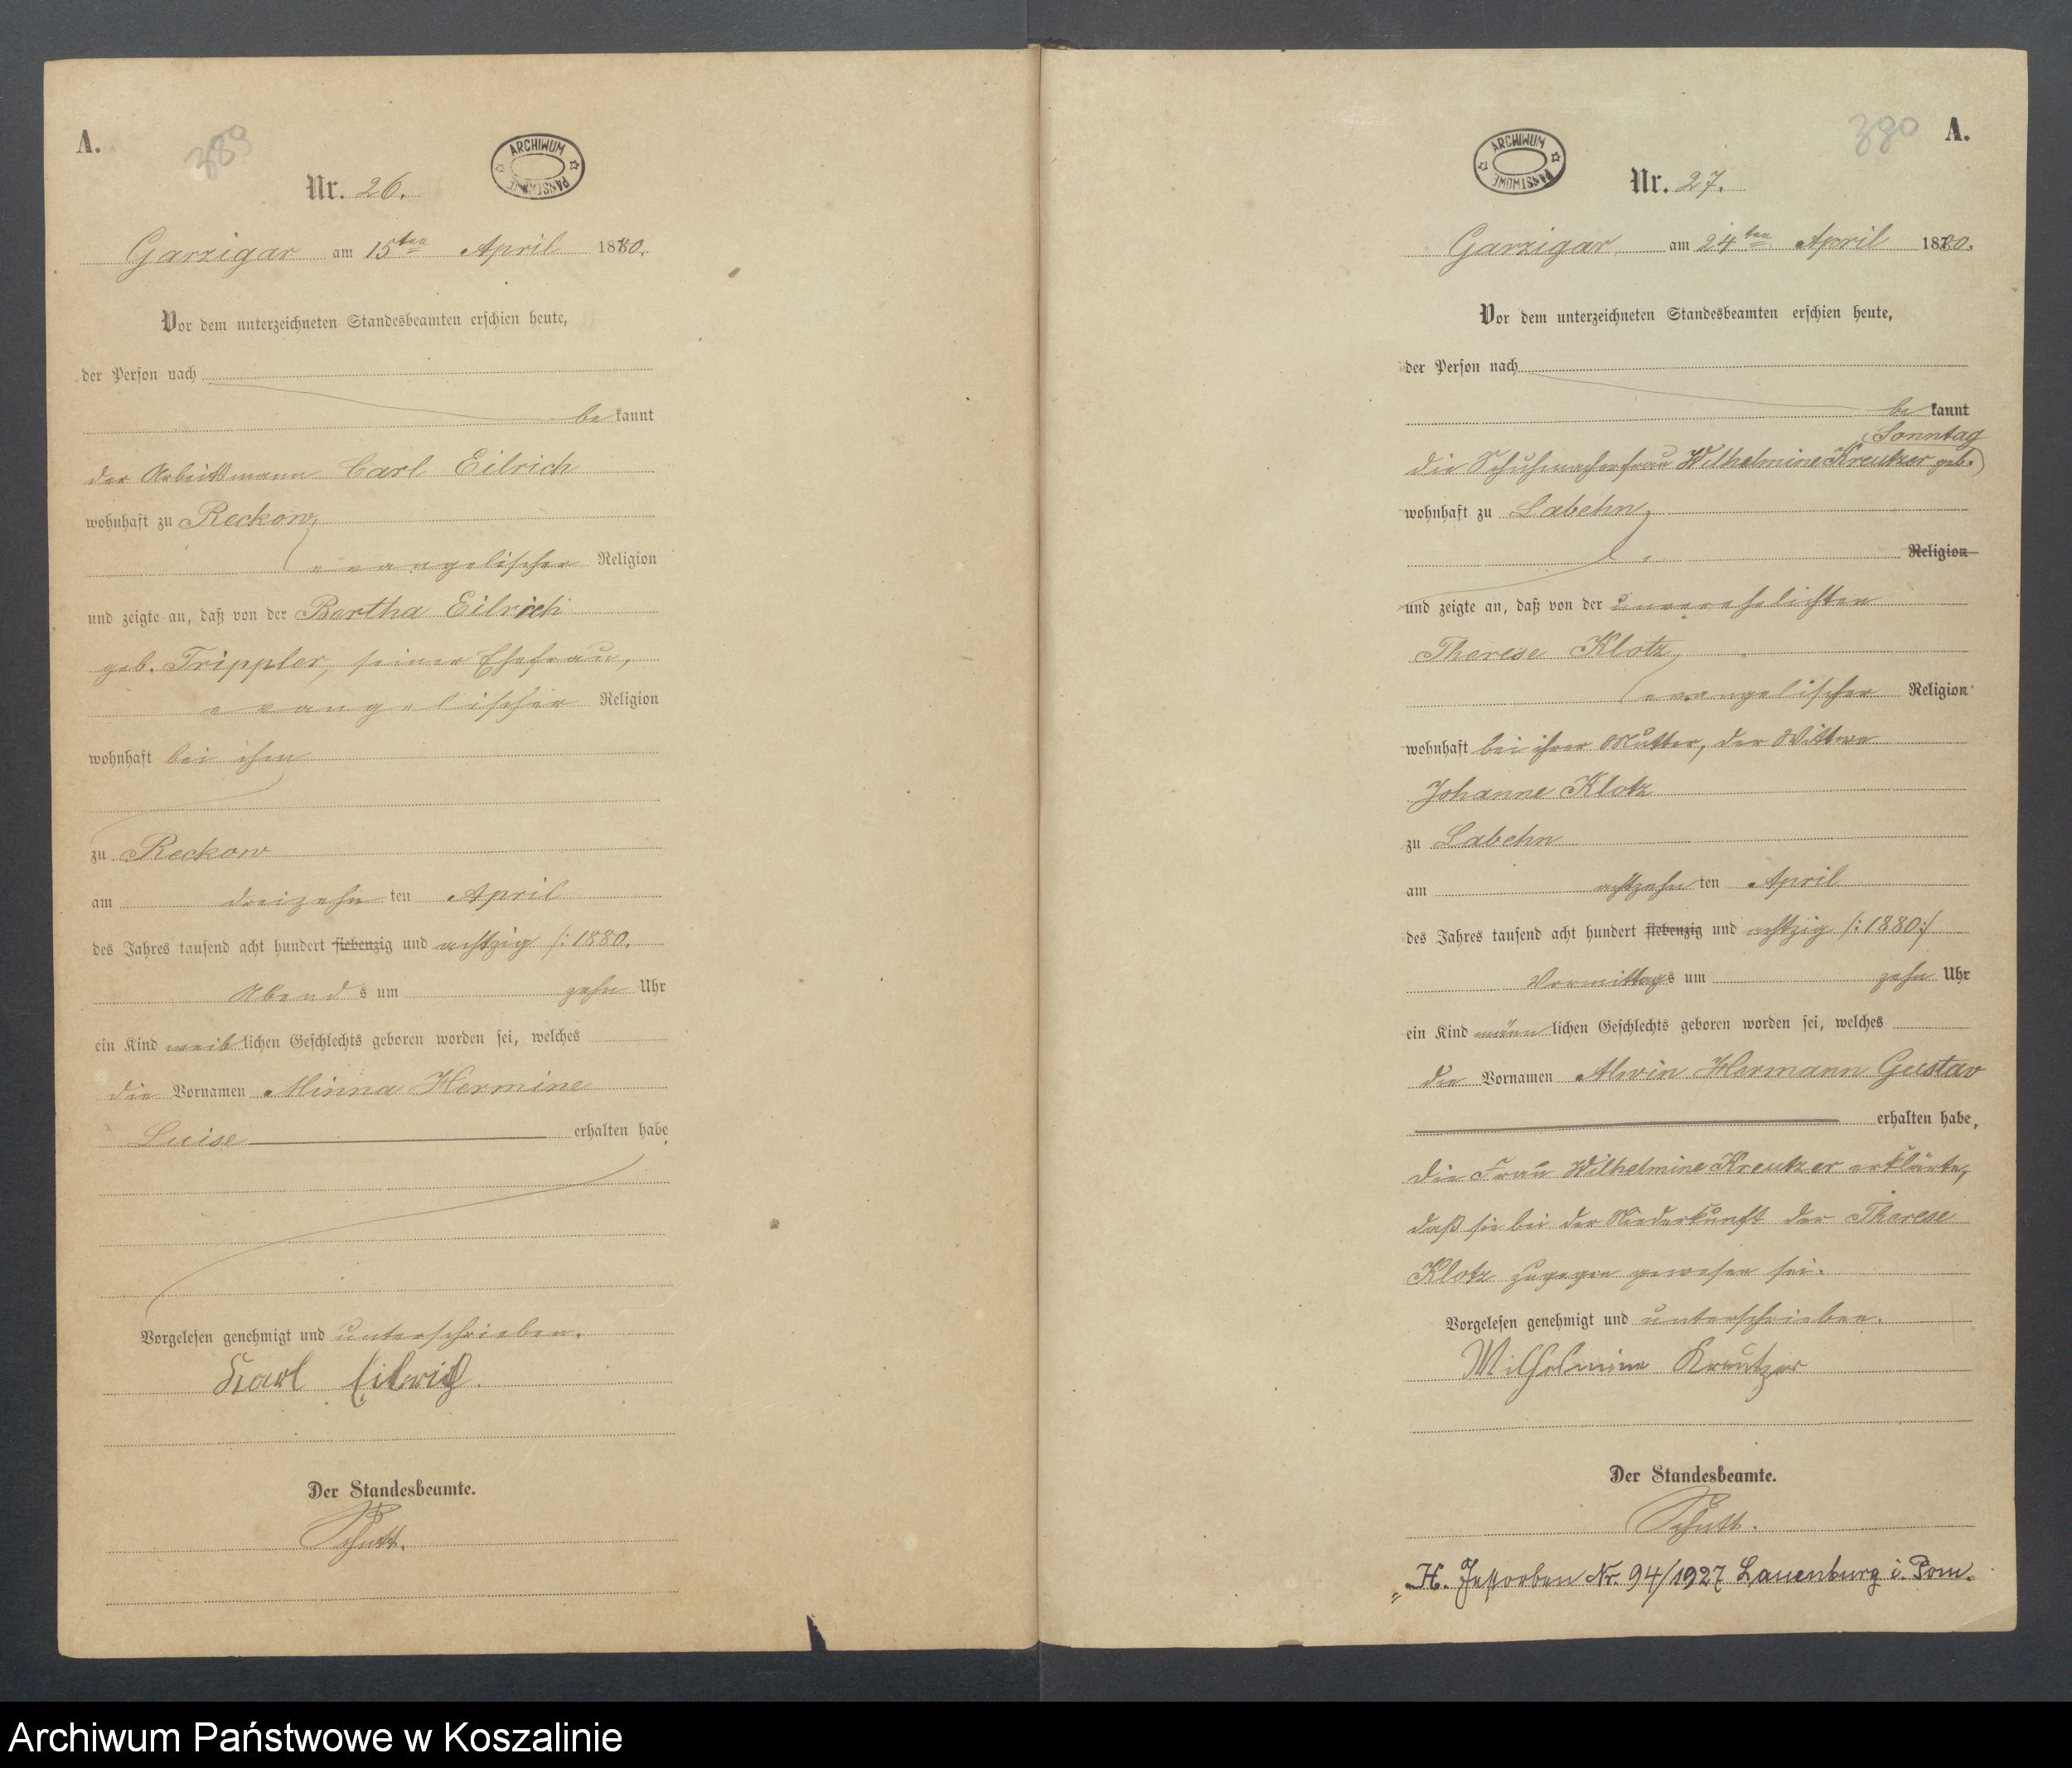 A.
389
ARCHIWUM PAŃSTWOWE
Nr. 26.
Garzigar am 15ten April 1880.
Vor dem unterzeichneten Standesbeamten erschien heute,
der Person nach
be kannt
der Arbeitsmann Carl Eilrich
wohnhaft zu Reckow,
evangelischer Religion
und zeigte an, daß von der Bertha Eilrich
geb. Trippler, seiner Ehefrau,
evangelischer Religion
wohnhaft bei ihm
zu Reckow
am dreizehn ten April
des Jahres tausend acht hundert siebenzig und achtzig /: 1880.
Abend s um zehn Uhr
ein Kind weib lichen Geschlechts geboren worden sei, welches
die Vornamen Minna Hermine
Luise erhalten habe
Vorgelesen genehmigt und unterschrieben.
Karl Eilrich.
Der Standesbeamte.
Schutt.
380 A.
ARCHIWUM PAŃSTWOWE
Nr. 27.
Garzigar am 24ten April 1880.
Vor dem unterzeichneten Standesbeamten erschien heute,
der Person nach
be kannt
Sonntag
die Schuhmacherfrau Wilhelmine Kreutzer geb.
wohnhaft zu Labehn,
Religion
und zeigte an, daß von der unverehelichten
Therese Klotz,
evangelischer Religion
wohnhaft bei ihrer Mutter, der Wittwe
Johanne Klotz
zu Labehn
am achtzehn ten April
des Jahres tausend acht hundert siebenzig und achtzig /: 1880 :/
Vormittag s um zehn Uhr
ein Kind männ lichen Geschlechts geboren worden sei, welches
die Vornamen Alwin Hermann Gustav
erhalten habe,
Die Frau Wilhelmine Kreutzer erklärte,
daß sie bei der Niederkunft der Therese
Klotz zugegen gewesen sei.
Vorgelesen genehmigt und unterschrieben.
Wilhelmine Kreutzer
Der Standesbeamte.
Schutt.
H. Gestorben Nr. 94/1927 Lauenburg i. Pom.
Archiwum Państwowe w Koszalinie